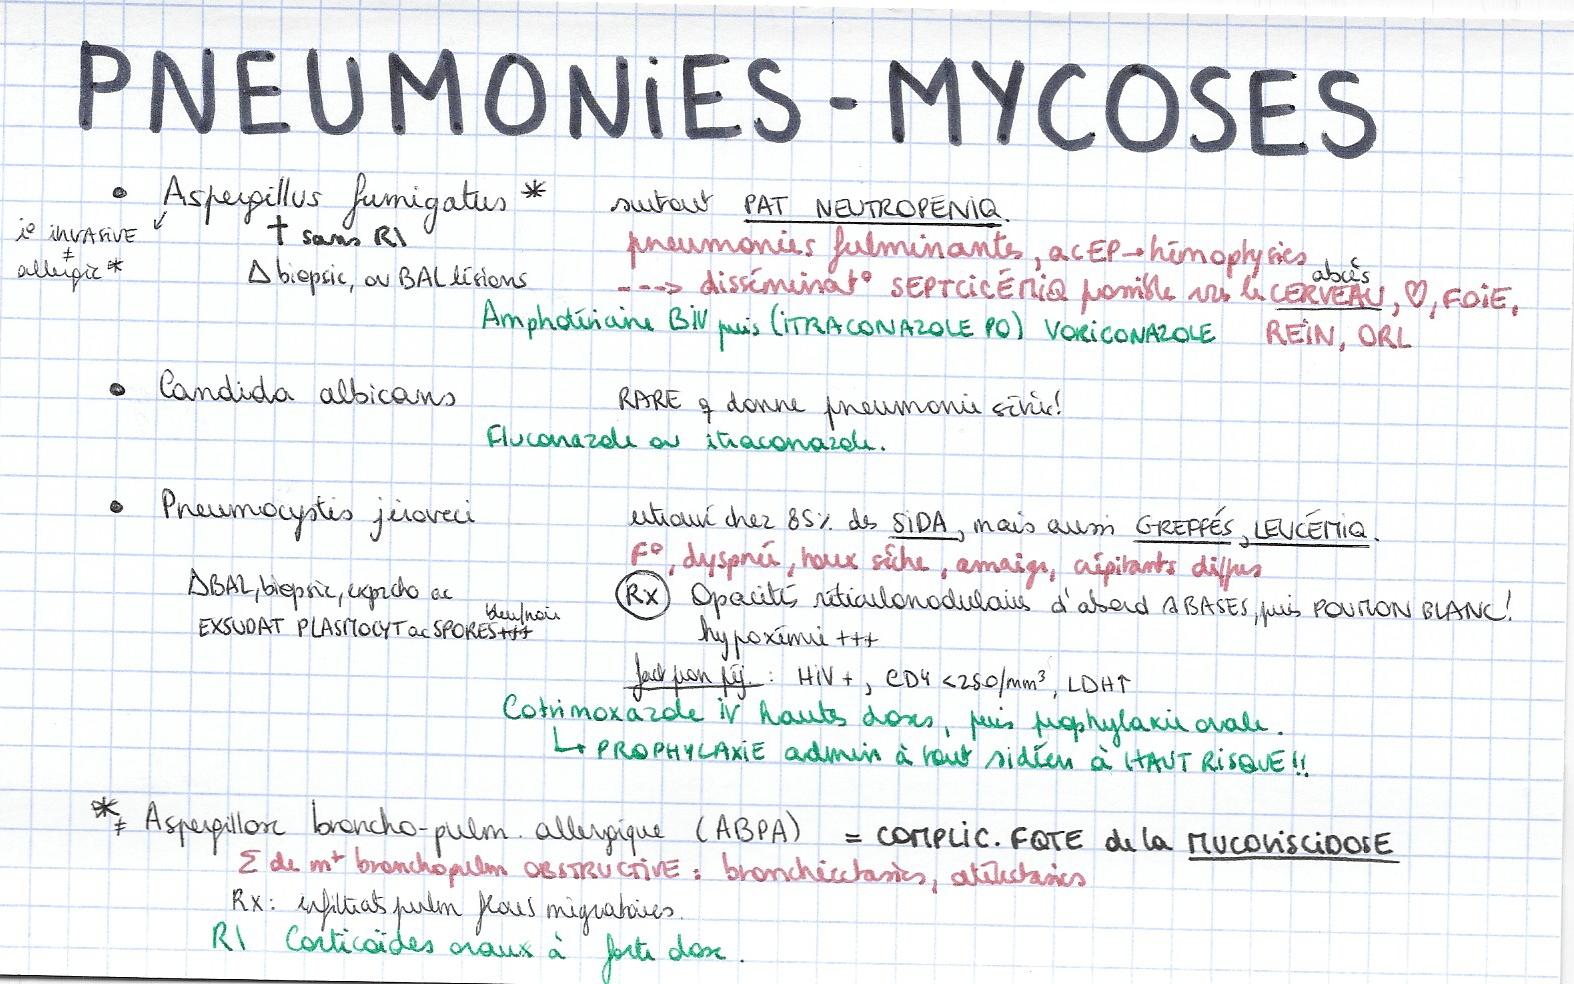 PNEUMONIES - MYCOSES
• Aspergillus fumigatus * surtout PAT NEUTROPÉNIQ.
i° INVASIVE
≠
allergic *
† sans R\
pneumonies fulminantes, ac EP → hémophysies
Δ biopsie, ou BAL lésions
---> disséminat° SEPTCICÉMIQ possible vers le CERVEAU, ♡, FOIE,
abcès
Amphotéricine B IV puis (ITRACONAZOLE PO) VORICONAZOLE REIN, ORL
• Candida albicans RARE q donne pneumonie série!
Fluconazole ou itraconazole.
• Pneumocystis jiroveci retrouvé chez 85% des SIDA, mais aussi GREFFÉS, LEUCÉMIQ.
F°, dyspnée, toux sèche, amaigr, crépitants diffus
Δ BAL, biopsie, expecto ac
EXSUDAT PLASMOCYT ac SPORES +++
bleu/noir
Rx Opacités réticulonodulaires d'abord à BASES, puis POUMON BLANC!
hypoxémie +++
fact pron péj. : HIV +, CD4 <250/mm³, LDH↑
Cotrimoxazole IV hautes doses, puis prophylaxie orale.
↳ PROPHYLAXIE admin à tout sidéen à HAUT RISQUE!!
* ≠ Aspergillose broncho-pulm. allergique (ABPA) = COMPLIC. FQTE de la MUCOVISCIDOSE
Σ de m⁺ bronchopulm OBSTRUCTIVE : bronchiectasies, atélectasies
Rx: infiltrats pulm flous migratoires.
R\ Corticoïdes oraux à forte dose.